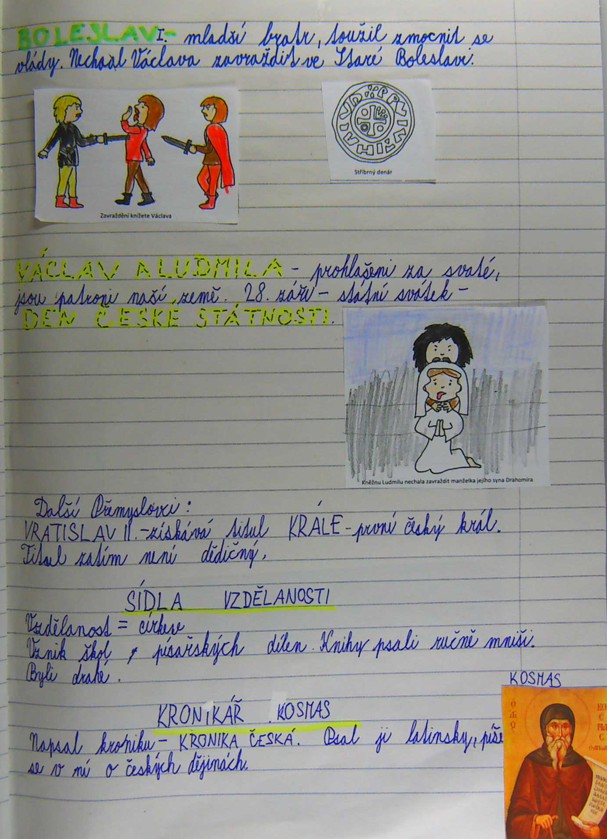 BOLESLAV I. - mladší bratr, toužil zmocnit se
vlády. Nechal Václava zavraždit ve Staré Boleslavi.
Zavraždění knížete Václava
Stříbrný denár
VÁCLAV A LUDMILA - prohlášeni za svaté,
jsou patroni naší země. 28. září - státní svátek -
DEN ČESKÉ STÁTNOSTI.
Kněžnu Ludmilu nechala zavraždit manželka jejího syna Drahomíra
Další Přemyslovci:
VRATISLAV II. - získává titul KRÁLE - první český král.
Titul zatím není dědičný.
SÍDLA VZDĚLANOSTI
Vzdělanost = církev
Vznik škol, písařských dílen. Knihy psali ručně mniši.
Byli drahé.
KOSMAS
KRONIKÁŘ KOSMAS
Napsal kroniku - KRONIKA ČESKÁ. Psal ji latinsky, píše
se v ní o českých dějinách.